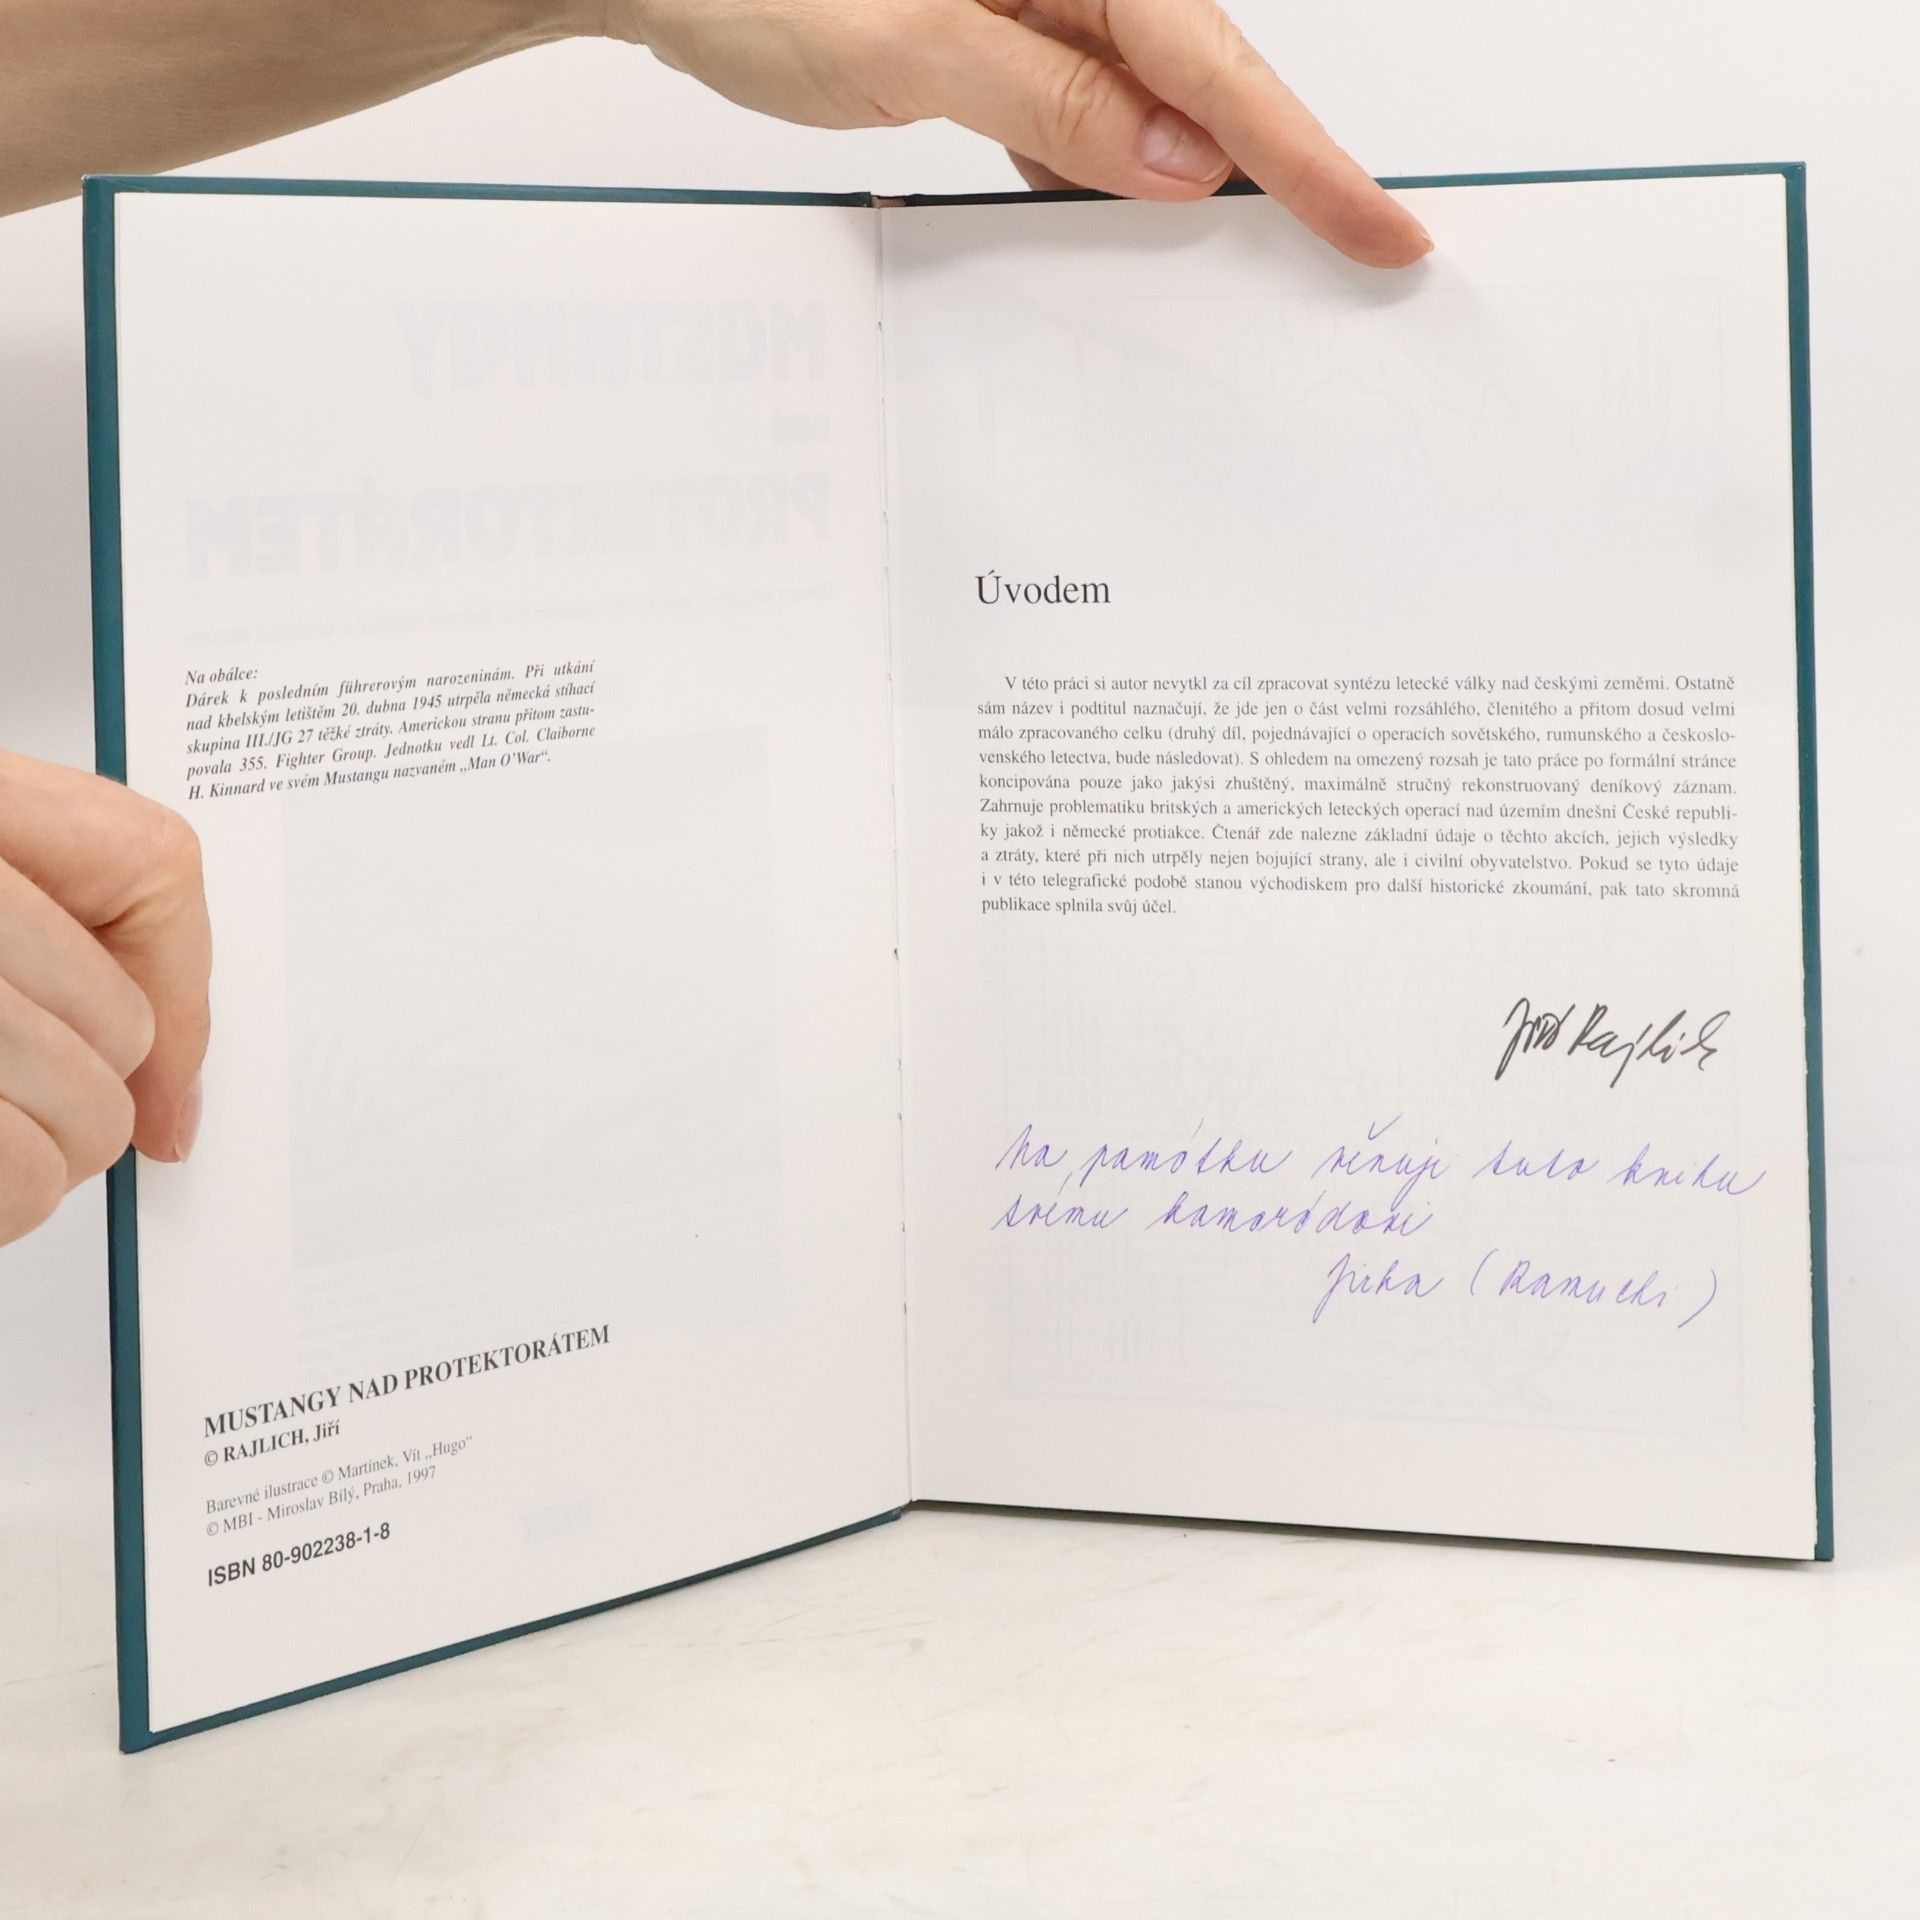 Na obálce:
Dárek k posledním führerovým narozeninám. Při utkání
nad kbelským letištěm 20. dubna 1945 utrpěla německá stíhací
skupina III./JG 27 těžké ztráty. Americkou stranu přitom zastu-
povala 355. Fighter Group. Jednotku vedl Lt. Col. Claiborne
H. Kinnard ve svém Mustangu nazvaném „Man O'War“.
MUSTANGY NAD PROTEKTORÁTEM
© RAJLICH, Jiří
Barevné ilustrace © Martínek, Vít „Hugo“
© MBI - Miroslav Bílý, Praha, 1997
ISBN 80-902238-1-8
Úvodem
V této práci si autor nevytkl za cíl zpracovat syntézu letecké války nad českými zeměmi. Ostatně
sám název i podtitul naznačují, že jde jen o část velmi rozsáhlého, členitého a přitom dosud velmi
málo zpracovaného celku (druhý díl, pojednávající o operacích sovětského, rumunského a českoslo-
venského letectva, bude následovat). S ohledem na omezený rozsah je tato práce po formální stránce
koncipována pouze jako jakýsi zhuštěný, maximálně stručný rekonstruovaný deníkový záznam.
Zahrnuje problematiku britských a amerických leteckých operací nad územím dnešní České republi-
ky jakož i německé protiakce. Čtenář zde nalezne základní údaje o těchto akcích, jejich výsledky
a ztráty, které při nich utrpěly nejen bojující strany, ale i civilní obyvatelstvo. Pokud se tyto údaje
i v této telegrafické podobě stanou východiskem pro další historické zkoumání, pak tato skromná
publikace splnila svůj účel.
Jiří Rajlich
Na památku věnuji tuto knihu
svému kamarádovi
Jirka
MUSTANGY
nad
PROTEKTORÁTEM